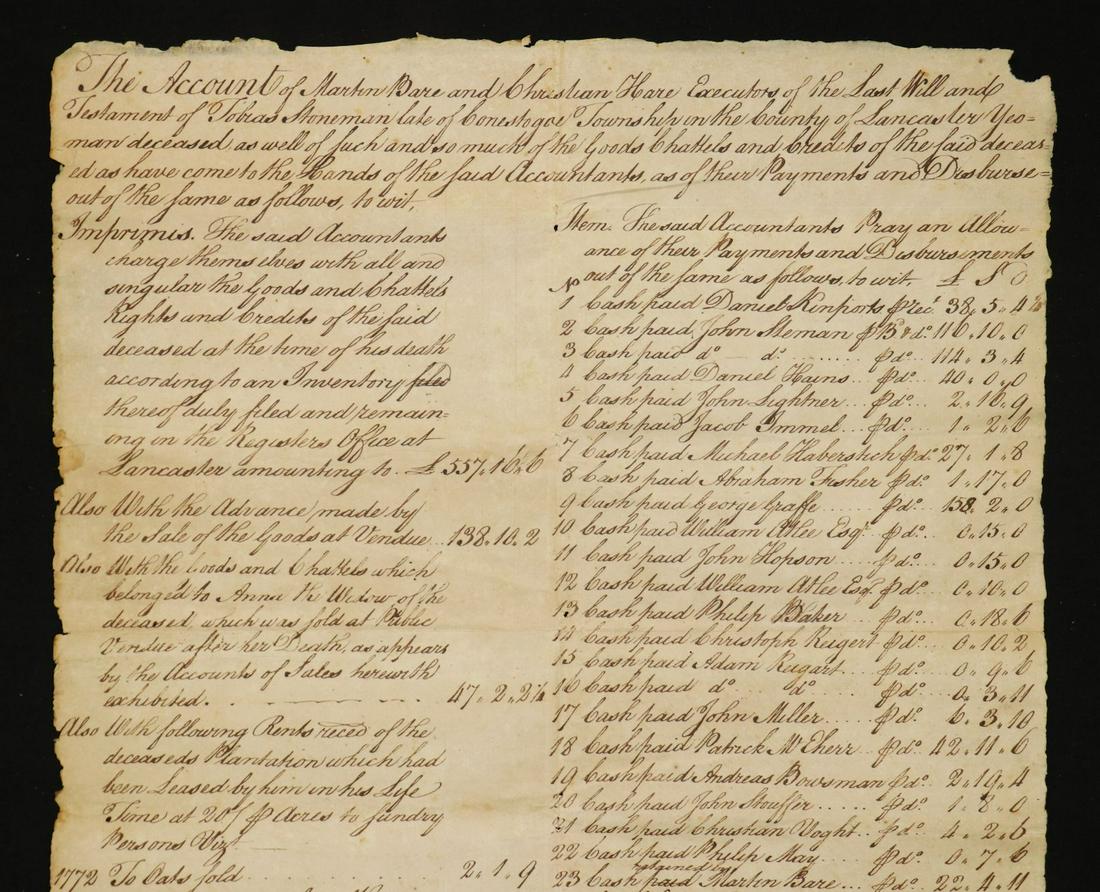 The Account of Martin Bare and Christian Hare Executors of the Last Will and
Testament of Tobias Stoneman late of Conestogoe Township in the County of Lancaster Yeo=
man deceased, as well of such and so much of the Goods Chattels and Credits of the said deceas=
ed as have come to the Hands of the said Accountants, as of their Payments and Disburse=
out of the same as follows, to wit,
Imprimis. The said Accountants
charge themselves with all and
singular the Goods and Chattels
Rights and Credits of the said
deceased at the time of his death
according to an Inventory filed
thereof duly filed and remain=
ing in the Registers Office at
Lancaster amounting to .. £ 557.. 16.. 6
Also With the Advance made by
the Sale of the Goods at Vendue.. 138.. 10.. 2
Also With the Goods and Chattels which
belonged to Anna the Widow of the
deceased, which was sold at Public
Vendue after her Death, as appears
by the Accounts of Sales herewith
exhibited. . . . 47.. 2.. 2½
Also With following Rents reced of the
deceaseds Plantation which had
been Leased by him in his Life
Time at 20/ ⅌ Acres to sundry
Persons Vizt.
1772 To Oats sold . . . . 2.. 1.. 9
Item. The said Accountants Pray an Allow=
ance of their Payments and Disbursements
out of the same as follows, to wit. £ S d
No
1 Cash paid Daniel Kinports ⅌ Rect. 38.. 5.. 4½
2 Cash paid John Steman ⅌ B & do. 116.. 10.. 0
3 Cash paid do. — do. ........ ⅌ do... 114.. 3.. 4
4 Cash paid Daniel Hains... ⅌ do... 40.. 0.. 0
5 Cash paid John Lightner... ⅌ do... 2.. 16.. 9
6 Cash paid Jacob Immel... ⅌ do... 1.. 2.. 6
7 Cash paid Michael Haberstich ⅌ do. 27.. 1.. 8
8 Cash paid Abraham Fisher ⅌ do. 1.. 17.. 0
9 Cash paid George Graffe.... ⅌ do... 158.. 2.. 0
10 Cash paid William Atlee Esqr. ⅌ do... 0.. 15.. 0
11 Cash paid John Hopson..... ⅌ do... 0.. 15.. 0
12 Cash paid William Atlee Esqr. ⅌ do... 0.. 10.. 0
13 Cash paid Philip Baker.... ⅌ do... 0.. 18.. 6
14 Cash paid Christoph Reigert ⅌ do... 0.. 10.. 2
15 Cash paid Adam Reigart.... ⅌ do... 0.. 9.. 6
16 Cash paid do. do. .... ⅌ do... 0.. 3.. 11
17 Cash paid John Miller..... ⅌ do... 6.. 3.. 10
18 Cash paid Patrick McEherr.. ⅌ do.. 42.. 11.. 6
19 Cash paid Andreas Bowsman ⅌ do.. 2.. 19.. 4
20 Cash paid John Stouffer..... ⅌ do... 1.. 8.. 0
21 Cash paid Christian Voght... ⅌ do... 4.. 2.. 6
22 Cash paid Philip May...... ⅌ do... 0.. 7.. 6
retained by
23 Cash paid Martin Bare... ⅌ do... 22.. 4.. 11